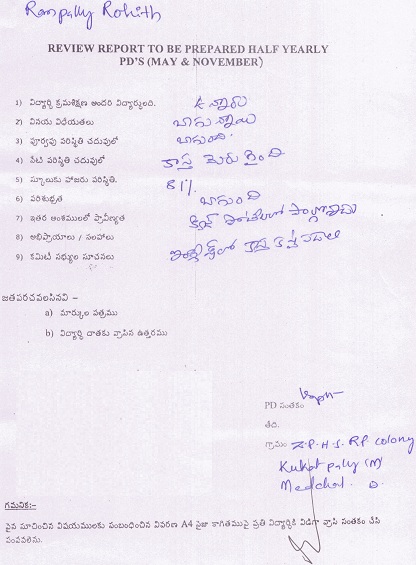 Ranpally Rohith
REVIEW REPORT TO BE PREPARED HALF YEARLY
PD'S (MAY & NOVEMBER)
1) విద్యార్థి క్రమశిక్షణ అందరి విద్యార్థులది.
2) వినయ విధేయతలు బాగున్నాయి
3) పూర్వపు పరిస్థితి చదువులో బాగుంది.
4) నేటి పరిస్థితి చదువులో కాస్త మెరుగైంది
5) స్కూలుకు హాజరు పరిస్థితి. 81%
6) పరిశుభ్రత బాగుంది
7) ఇతర అంశములలో ప్రావీణ్యత
8) అభిప్రాయాలు / సలహాలు
9) కమిటీ సభ్యుల సూచనలు
జతపరచవలసినవి –
a) మార్కుల పత్రము
b) విద్యార్థి దాతకు వ్రాసిన ఉత్తరము
PD సంతకం
తేది.
గ్రామం Z.P.H.S. RP. colony
Kukatpally (M)
Medchal. D.
గమనిక:-
పైన సూచించిన విషయములకు సంబంధించిన వివరణ A4 సైజు కాగితముపై ప్రతి విద్యార్థికి విడిగా వ్రాసి సంతకం చేసి
పంపవలెను.